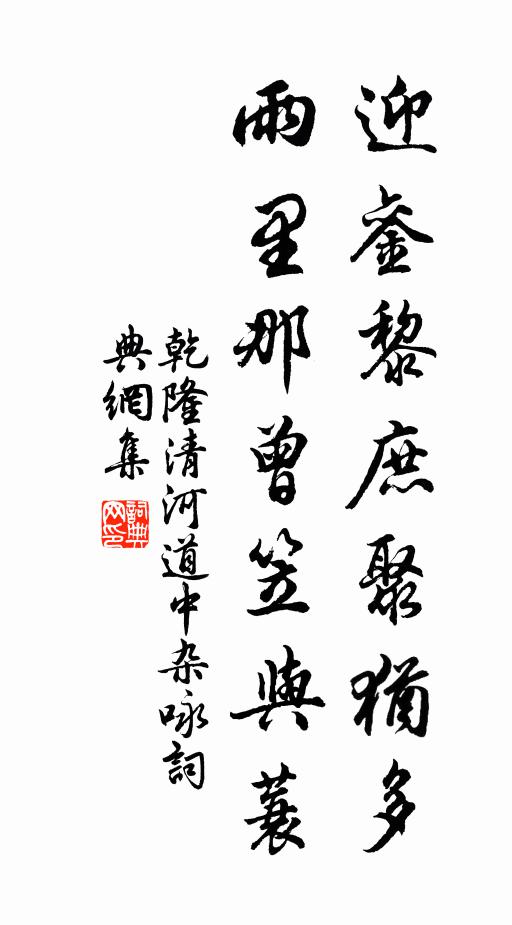 迎銮黎庶聚猶多
雨里那曾笠與蓑
乾隆清河道中杂咏詞
典網集
詞典网印